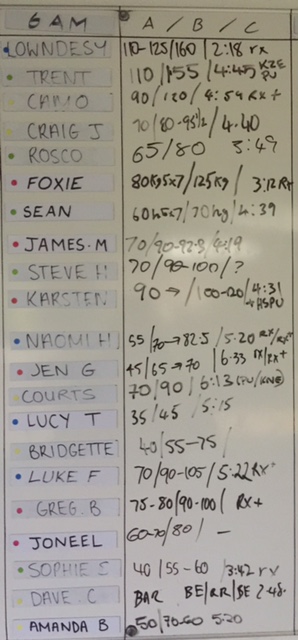 6 AM A / B / C
LOWNDESY 110-125/160 / 2:18 rx
TRENT 110/155 /4:45 KZE PU
CAMO 90/120/ 4:59 Rx+
CRAIG J 70/80-95½/4.40
ROSCO 65/80 3:49
FOXIE 80kg5x7/125kg/ 3:12Rx
SEAN 60kg5x7/70kg/4:39
JAMES.M 70/90-92.5/4:19
STEVE H 70/90-100/?
KARSTEN 90→/100-120/4:31 HSPU
NAOMI H 55/70→82.5/5.20 Rx/Rx+
JEN G 45/65→70 / 6:33 rx/rx+
COURTS 70/90/6:13
LUCY T 35/45 / 5:15
BRIDGETTE 40/55-75/
LUKE F 70/90-105/5:22 Rx+
GREG.B 75-80/90-100/ Rx+
JONEEL 60-70/80/ -
SOPHIE S 40/55-60 /3:42 rx
DAVE C BAR BE/RR/BE 2.48.
AMANDA B 50/70-60 5:20